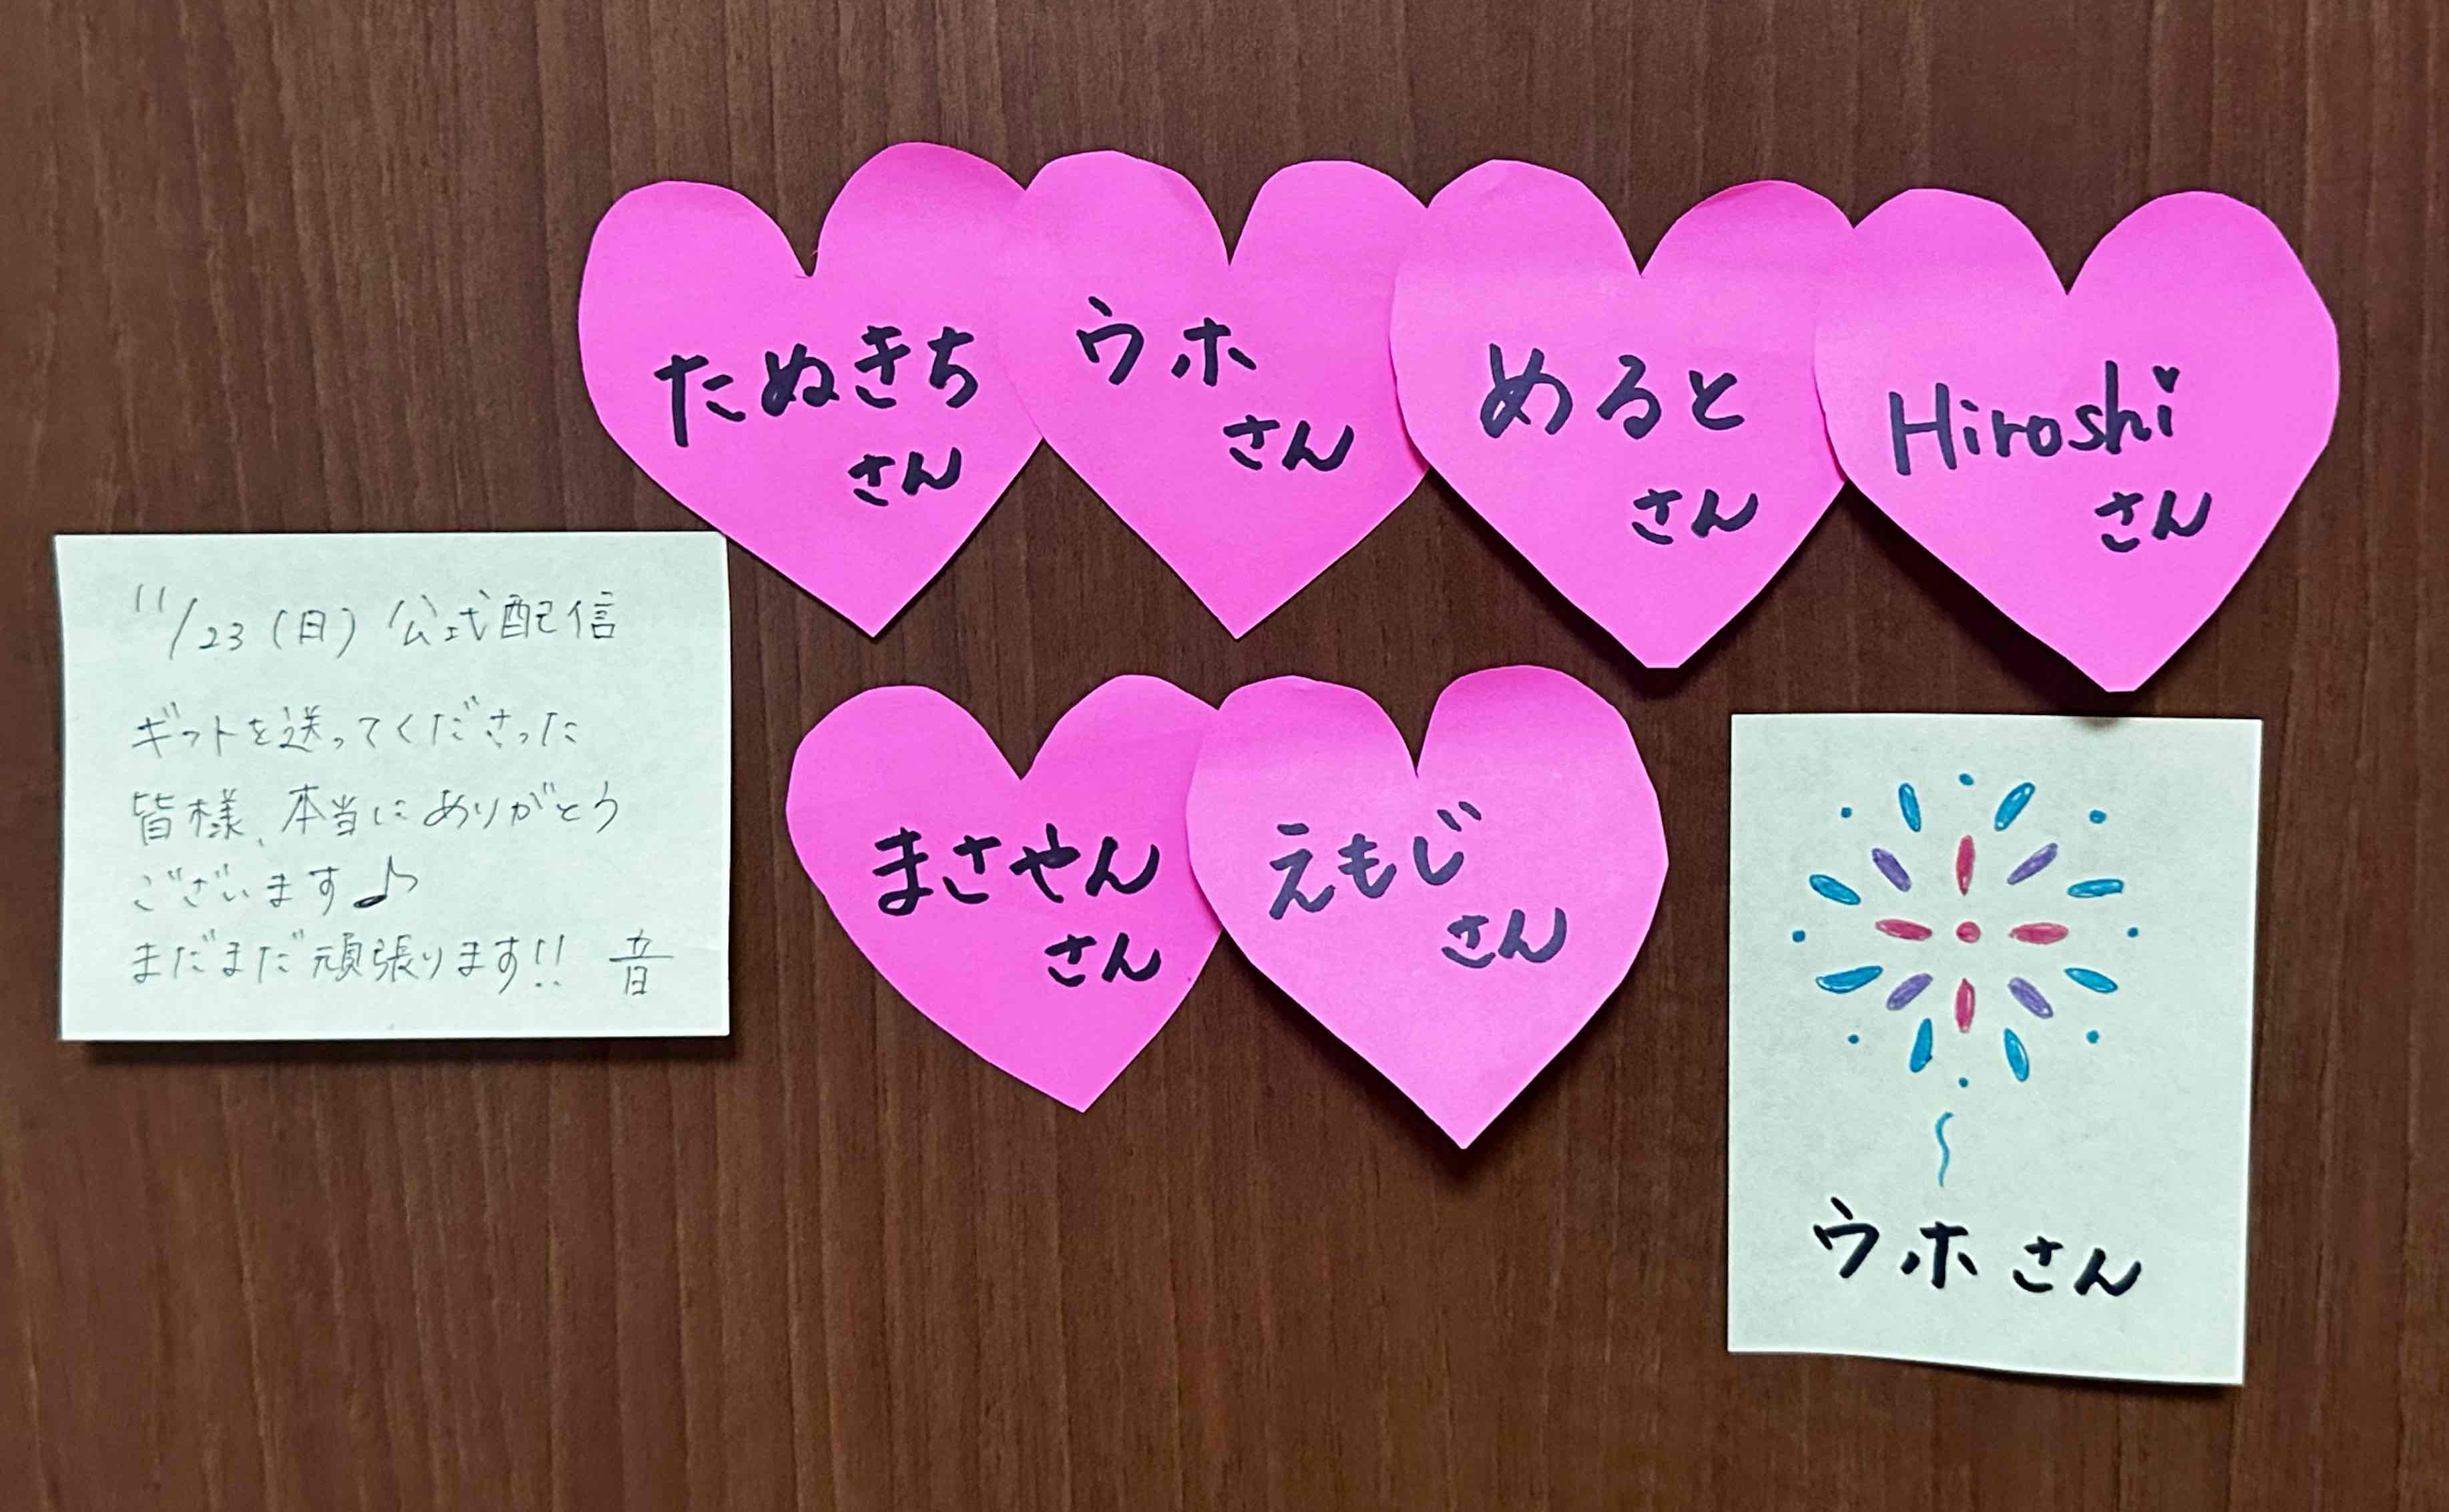 たぬきち
さん
ウホ
さん
めると
さん
Hiroshi
さん
11/23(日)公式配信
ギフトを送ってくださった
皆様、本当にありがとう
ございます♪
まだまだ頑張ります!! 音
まさやん
さん
えもじ
さん
ウホさん